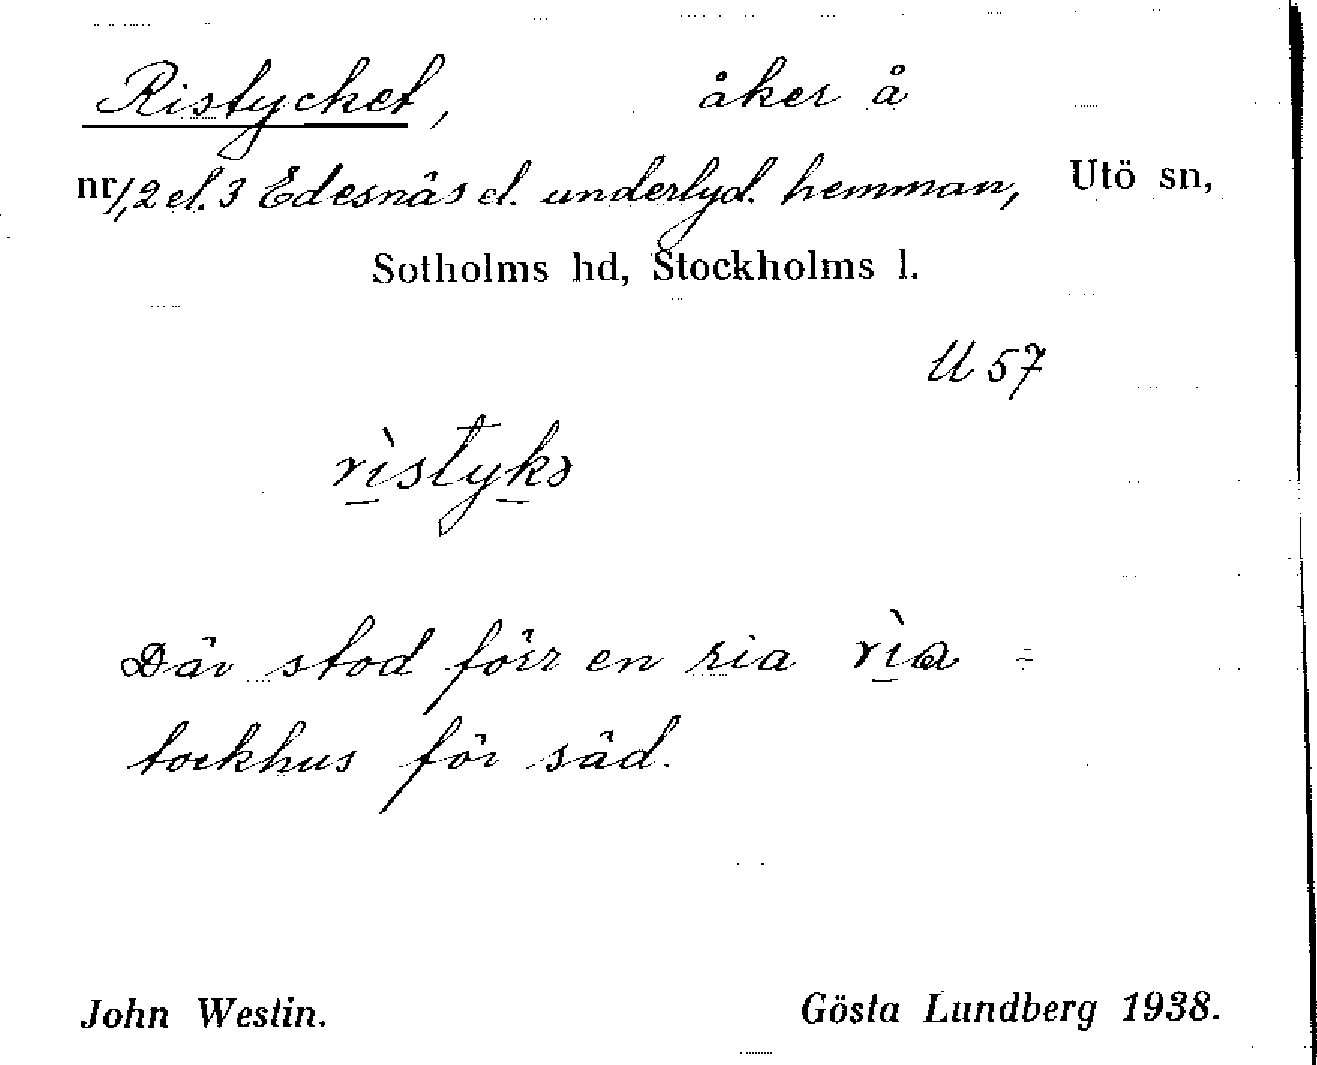 Ristycket, åker å
nr 1, 2 el. 3 Edesnäs el. underlyd. hemman, Utö sn,
Sotholms hd, Stockholms l.
U 57
rìstykə
Där stod förr en ria rìa =
tockhus för säd.
John Westin. Gösta Lundberg 1938.